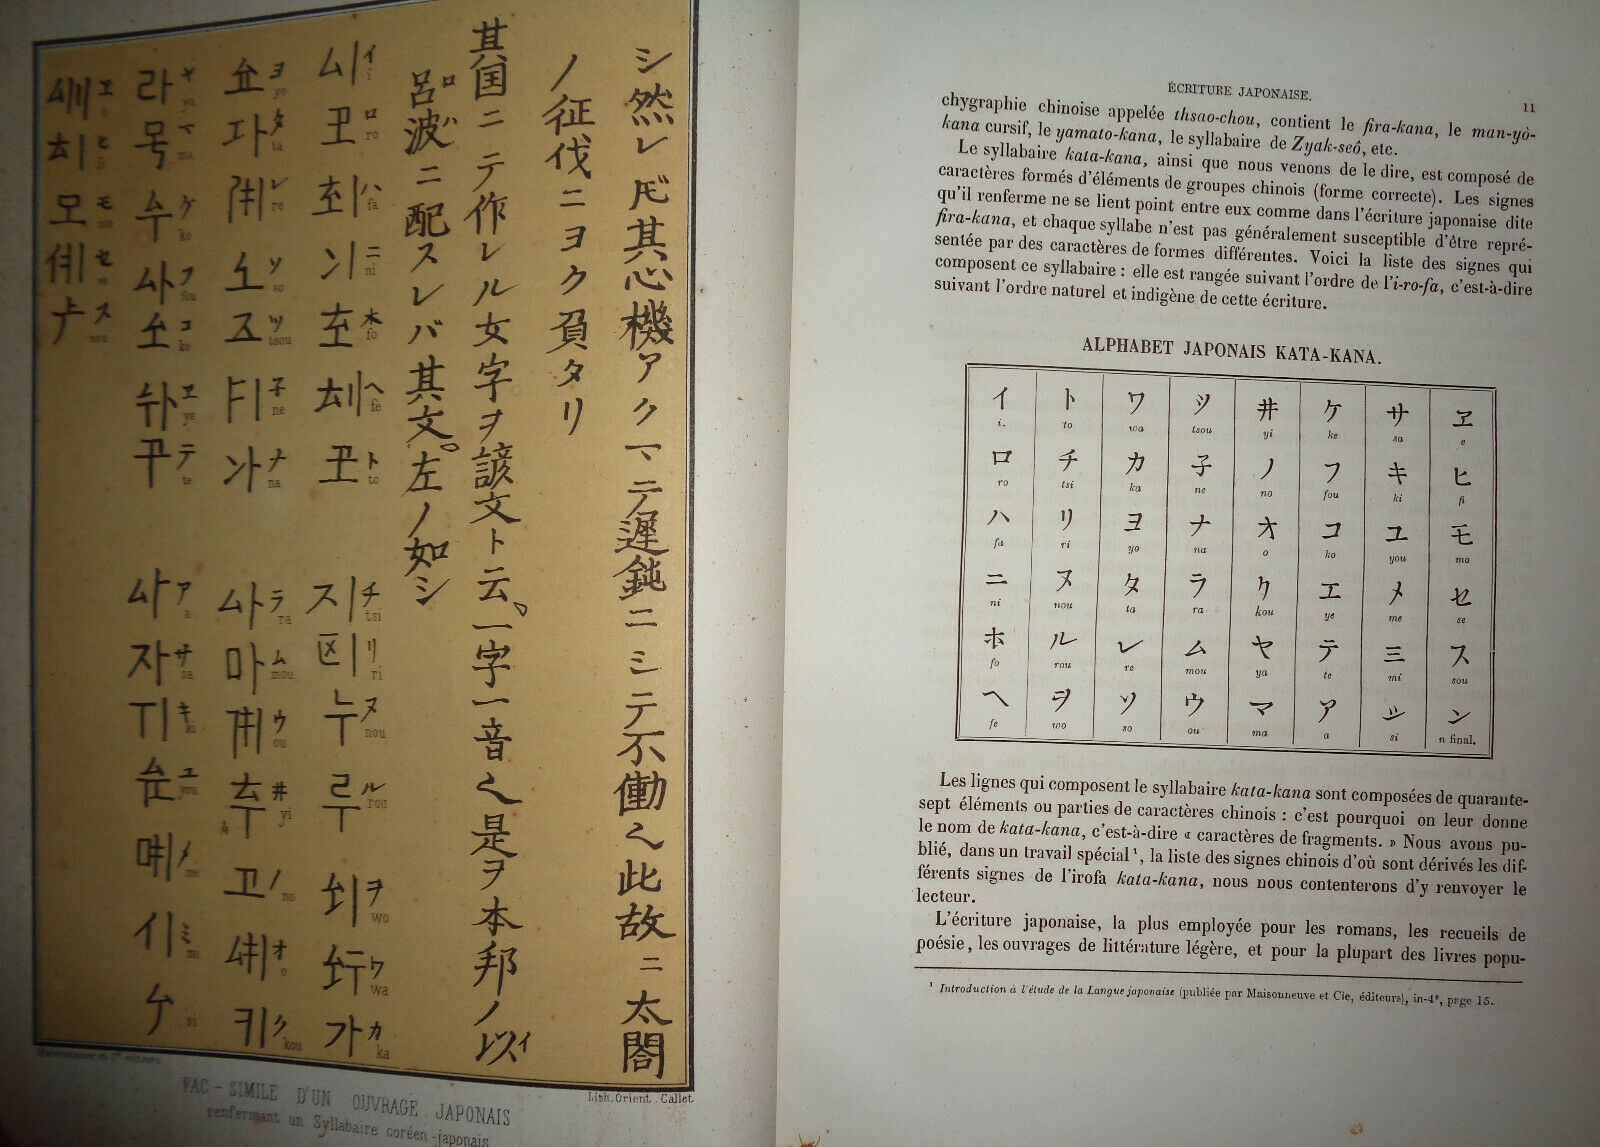 シ然レ𪜈其心機アクマデ遲鈍ニシテ不働く此故ニ太閤
ノ征伐ニヨク負タリ
其国ニテ作レル女字ヲ諺文ト云。一字一音く是ヲ本邦ノ以イ
呂ロ波ハニ配スレバ其文。左ノ如シ
イ i
ロ ro
ハ fa
ニ ni
ホ fo
ヘ fe
ト to
チ tsi
リ ri
ヌ nou
ル rou
ヲ wo
ワ wa
カ ka
ヨ yo
タ ta
レ re
ソ so
ツ tsou
子 ne
ナ na
ラ ra
ム mou
ウ ou
井 yi
ノ no
オ o
ク kou
ヤ ya
マ ma
ケ ke
フ fou
コ ko
ヱ ye
テ te
ア a
サ sa
キ ki
ユ you
メ me
ミ
si
ヱ e
ヒ fi
モ mo
セ se
ス sou
Maisonneuve et Cie éditeurs.
Lith. Orient. Callet
FAC-SIMILE D'UN OUVRAGE JAPONAIS
renfermant un Syllabaire coréen-japonais
ÉCRITURE JAPONAISE. 11
chygraphie chinoise appelée thsao-chou, contient le fira-kana, le man-yô-
kana cursif, le yamato-kana, le syllabaire de Zyak-seô, etc.
Le syllabaire kata-kana, ainsi que nous venons de le dire, est composé de
caractères formés d'éléments de groupes chinois (forme correcte). Les signes
qu'il renferme ne se lient point entre eux comme dans l'écriture japonaise dite
fira-kana, et chaque syllabe n'est pas généralement susceptible d'être repré-
sentée par des caractères de formes différentes. Voici la liste des signes qui
composent ce syllabaire : elle est rangée suivant l'ordre de l'i-ro-fa, c'est-à-dire
suivant l'ordre naturel et indigène de cette écriture.
ALPHABET JAPONAIS KATA-KANA.
イ ト ワ ツ 井 ケ サ ヱ
i. to wa tsou yi ke sa e
ロ チ カ 子 ノ フ キ ヒ
ro tsi ka ne no fou ki fi
ハ リ ヨ ナ オ コ ユ モ
fa ri yo na o ko you mo
ニ ヌ タ ラ ク エ メ セ
ni nou ta ra kou ye me se
ホ ル レ ム ヤ テ ミ ス
fo rou re mou ya te mi sou
ヘ ヲ ソ ウ マ ア シ ン
fe wo so ou ma a si n final.
Les lignes qui composent le syllabaire kata-kana sont composées de quarante-
sept éléments ou parties de caractères chinois : c'est pourquoi on leur donne
le nom de kata-kana, c'est-à-dire « caractères de fragments. » Nous avons pu-
blié, dans un travail spécial¹, la liste des signes chinois d'où sont dérivés les dif-
férents signes de l'irofa kata-kana, nous nous contenterons d'y renvoyer le
lecteur.
L'écriture japonaise, la plus employée pour les romans, les recueils de
poésie, les ouvrages de littérature légère, et pour la plupart des livres popu-
¹ Introduction à l'étude de la Langue japonaise (publiée par Maisonneuve et Cie, éditeurs), in-4°, page 15.